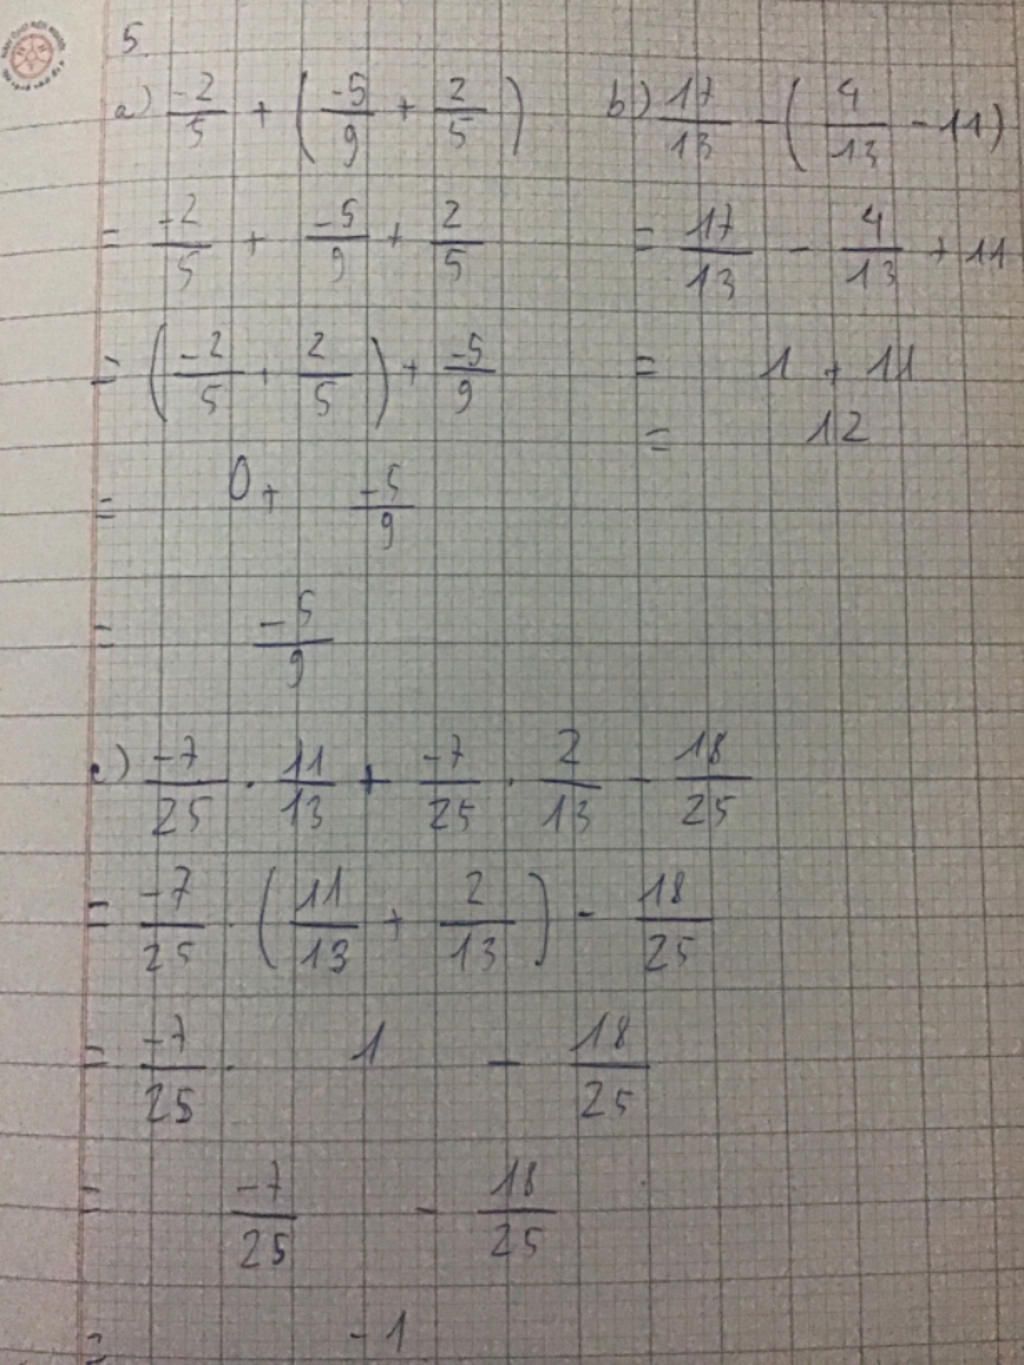 5
a) \frac{-2}{5} + ( \frac{-5}{9} + \frac{2}{5} )
= \frac{-2}{5} + \frac{-5}{9} + \frac{2}{5}
= ( \frac{-2}{5} + \frac{2}{5} ) + \frac{-5}{9}
= 0 + \frac{-5}{9}
= \frac{-5}{9}
b) \frac{17}{13} - ( \frac{4}{13} - 11 )
= \frac{17}{13} - \frac{4}{13} + 11
= 1 + 11
= 12
c) \frac{-7}{25} . \frac{11}{13} + \frac{-7}{25} . \frac{2}{13} - \frac{18}{25}
= \frac{-7}{25} . ( \frac{11}{13} + \frac{2}{13} ) - \frac{18}{25}
= \frac{-7}{25} . 1 - \frac{18}{25}
= \frac{-7}{25} - \frac{18}{25}
= -1